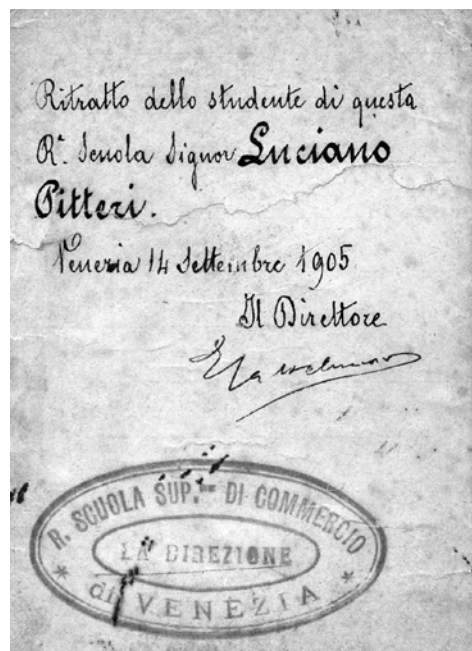 Ritratto dello studente di questa
R.ª Scuola Signor Luciano
Pitteri.
Venezia 14 Settembre 1905
Il Direttore
R. SCUOLA SUP.RE DI COMMERCIO
LA DIREZIONE
* di VENEZIA *